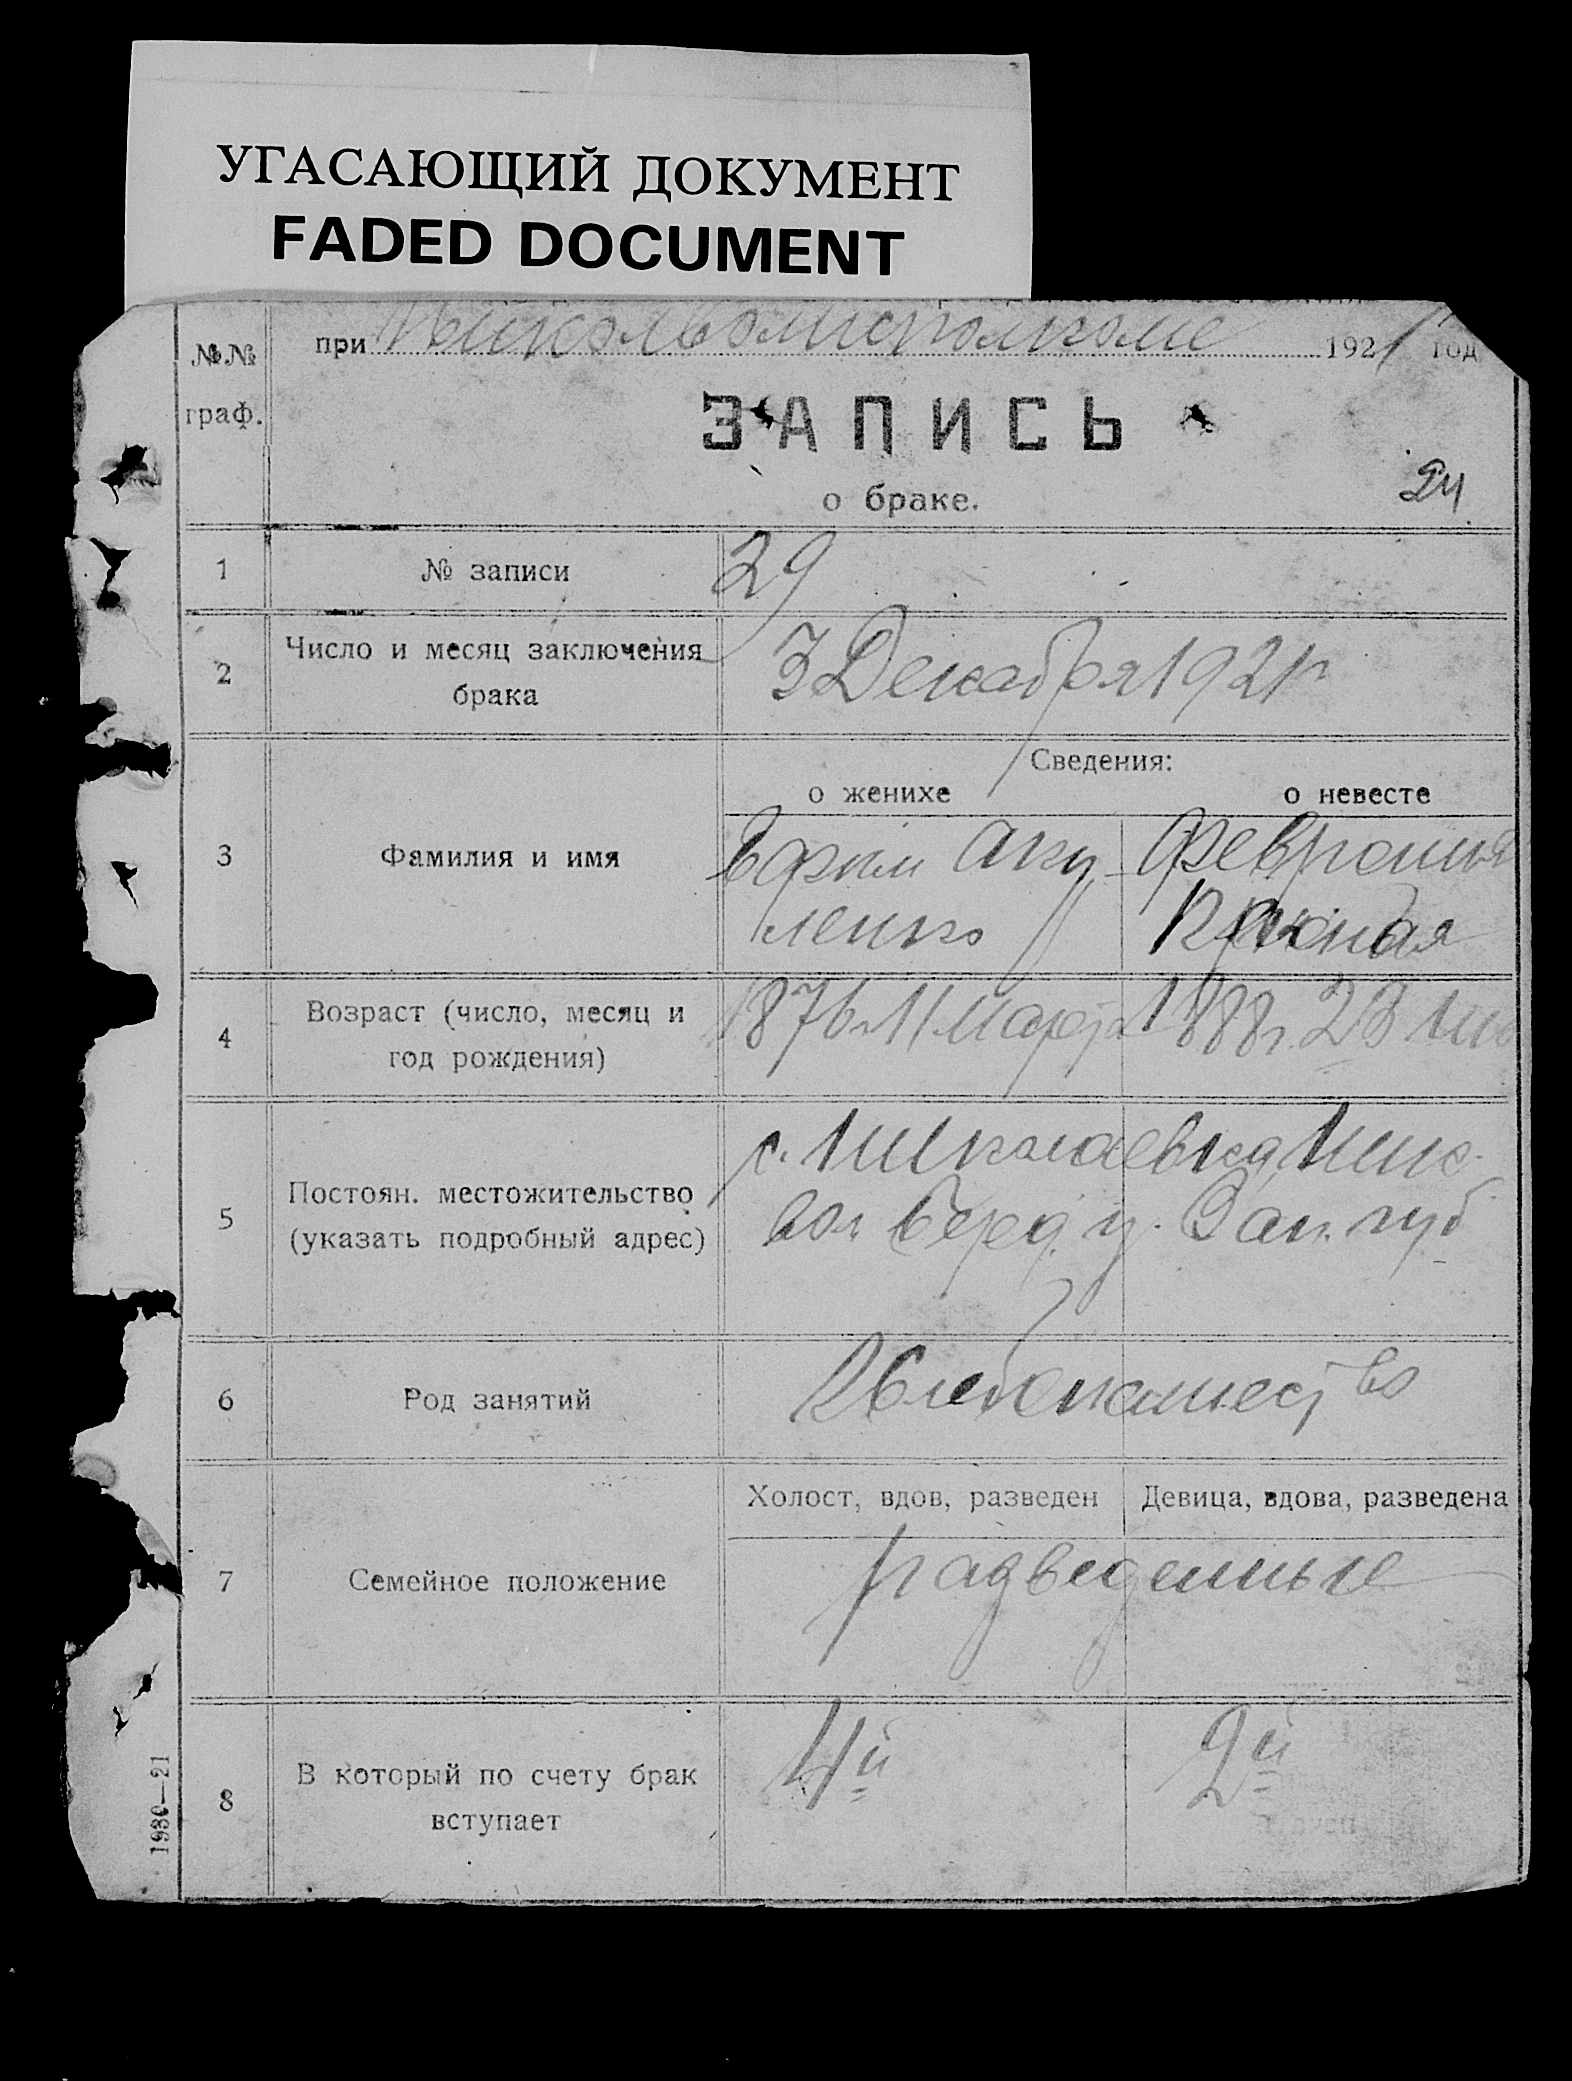 УГАСАЮЩИЙ ДОКУМЕНТ
FADED DOCUMENT
№№ граф.
при 1921 год
ЗАПИСЬ
о браке.
24
1 № записи 29
2 Число и месяц заключения
брака
3 Декабря 1921 г
Сведения:
о женихе о невесте
3 Фамилия и имя
Феврония
ленко
4 Возраст (число, месяц и
год рождения)
1876 г 11 Марта 1888 г. 23
5 Постоян. местожительство
(указать подробный адрес)
с. Николаевка Ник.
вол Берд. у. Зап. губ
6 Род занятий
Хлебопашество
Холост, вдов, разведен Девица, вдова, разведена
7 Семейное положение
разведенные
8 В который по счету брак
вступает
4й 2й
1980—21